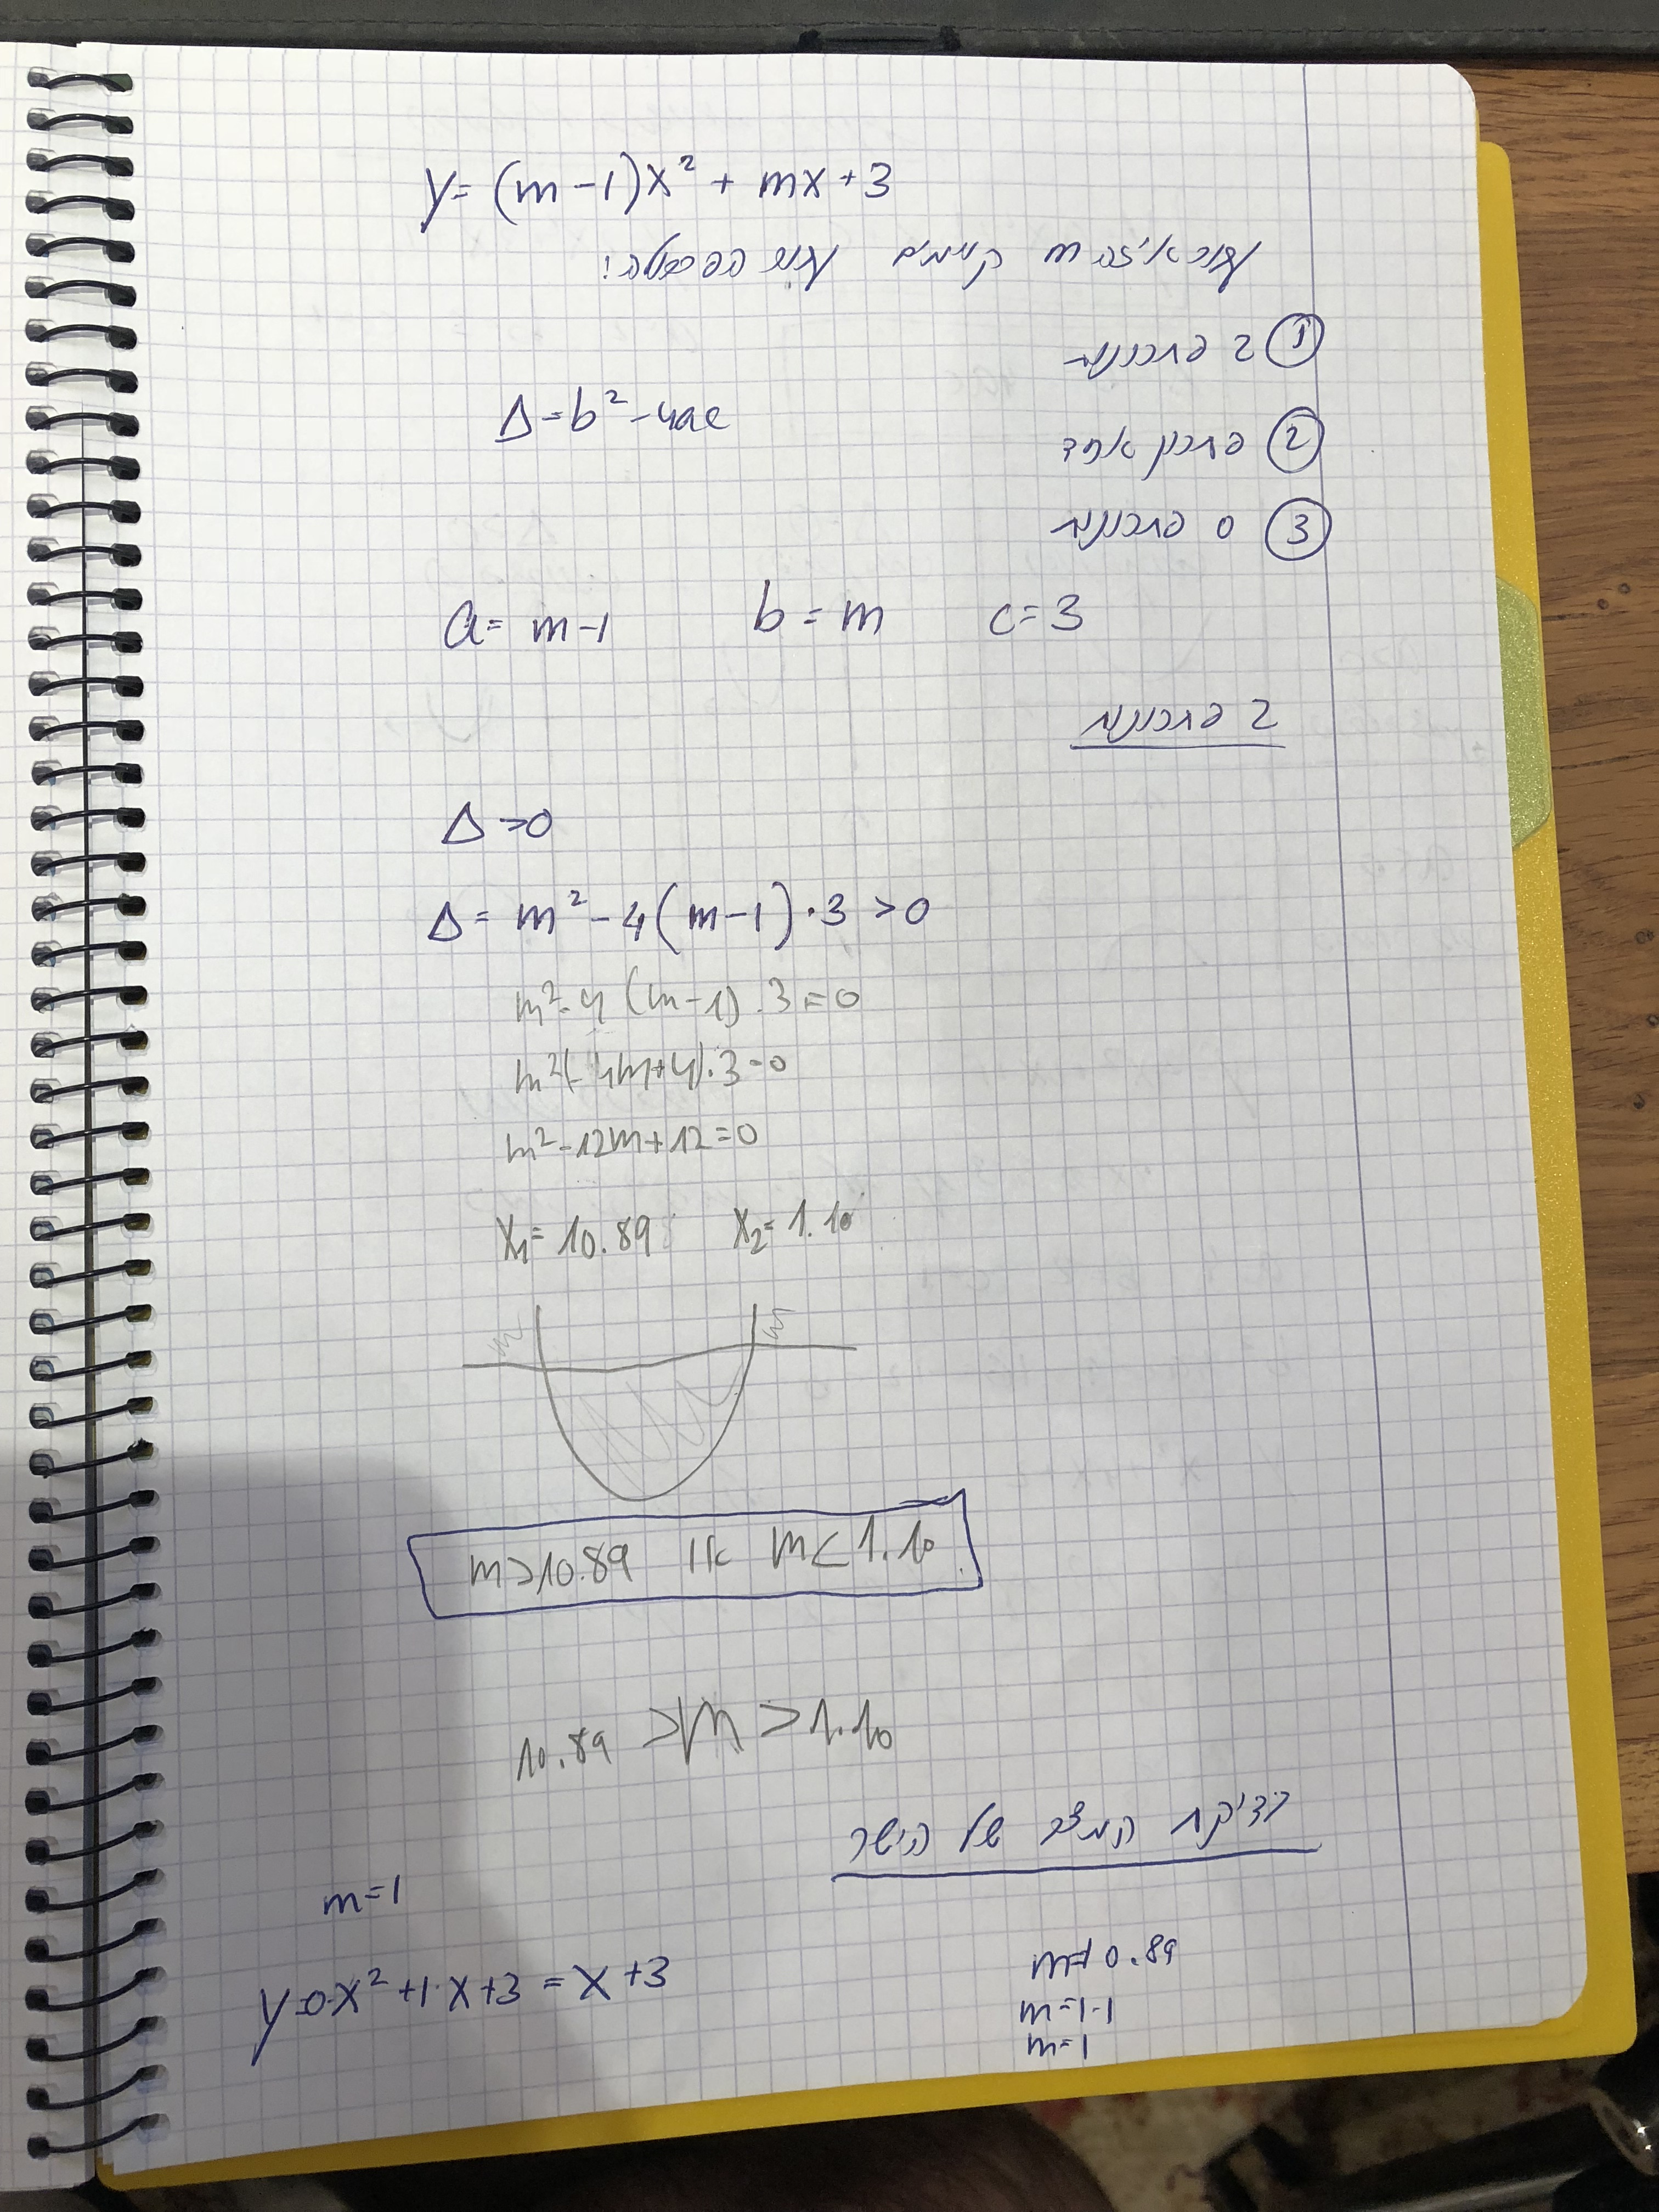 y= (m-1)x² + mx+3
עבור איזה m קיימים עבור הפרבולה:
① 2 פתרונות
Δ=b²-4ac
② פתרון אחד
③ 0 פתרונות
a= m-1 b=m c=3
2 פתרונות
Δ>0
Δ= m²-4(m-1)·3 >0
m²-4(m-1)·3=0
m²(-4m+4)·3=0
m²-12m+12=0
x₁= 10.89 x₂= 1.10
m>10.89 או m<1.10
10.89 >m >1.10
בדיקת המצב של הישר
m=1
y=0·x²+1·x+3 = x+3
m=10.89
m=1.1
m=1